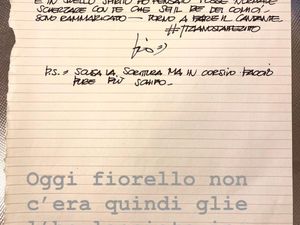 E IN QUELLO SPIRITO HO PENSATO FOSSE NORMALE
SCHERZARE CON TE CHE SEI IL RE DEI COMICI.
SONO RAMMARICATO — TORNO A FARE IL CANTANTE
#TIZIANOSTAIFERITO
P.S.: SCUSA LA SCRITTURA MA IN CORSIVO FACCIO
PURE PIÙ SCHIFO.
Oggi fiorello non
c'era quindi glie